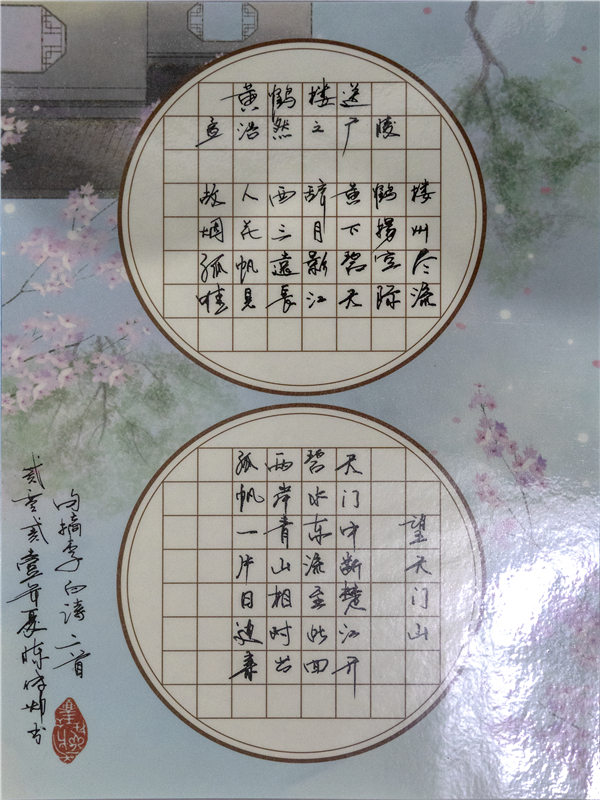 黄鹤楼送
孟浩然之广陵
故人西辞黄鹤楼
烟花三月下扬州
孤帆遠影碧空尽
唯見長江天际流
望天门山
天门中断楚江开
碧水东流至此回
两岸青山相对出
孤帆一片日边来
内摘李白诗二首
贰零贰壹年夏陈书